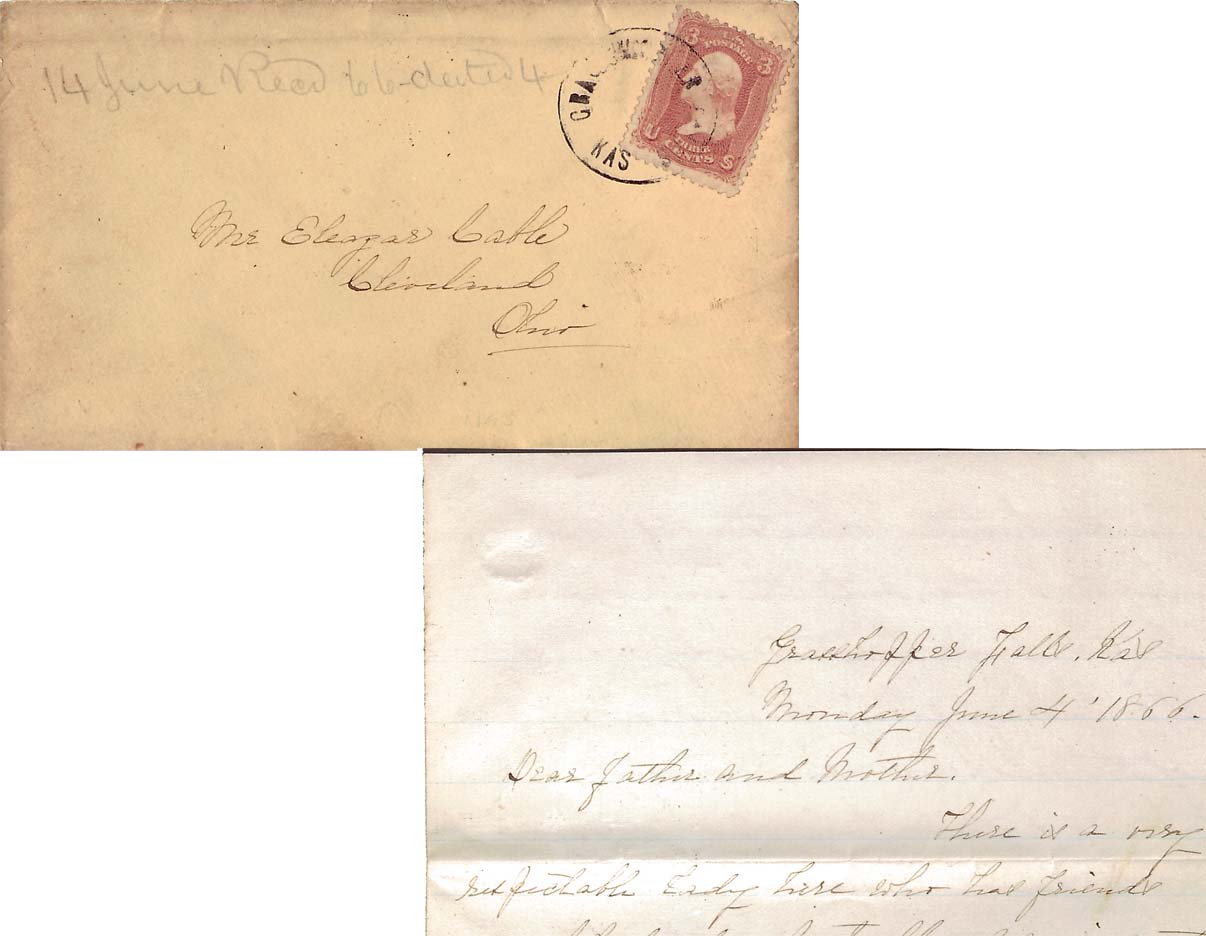 14 June Recd 66 dated 4
KAS
3 U.S. 3
POSTAGE
U THREE S
CENTS
Mr Eleazar Cable
Cleveland
Ohio
Grasshopper Falls, Kas
Monday June 4' 1866.
Dear Father and Mother.
There is a very
respectable Lady here who has friends